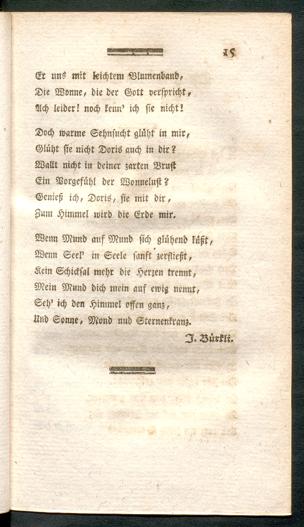 15
Er uns mit leichtem Blumenband,
Die Wonne, die der Gott verspricht,
Ach leider! noch kenn' ich sie nicht!
Doch warme Sehnsucht glüht in mir,
Glüht sie nicht Doris auch in dir?
Wallt nicht in deiner zarten Brust
Ein Vorgefühl der Wonnelust?
Genieß ich, Doris, sie mit dir,
Zum Himmel wird die Erde mir.
Wenn Mund auf Mund sich glühend küßt,
Wenn Seel' in Seele sanft zerfließt,
Kein Schicksal mehr die Herzen trennt,
Mein Mund dich mein auf ewig nennt,
Seh' ich den Himmel offen ganz,
Und Sonne, Mond und Sternenkranz.
J. Bürkli.